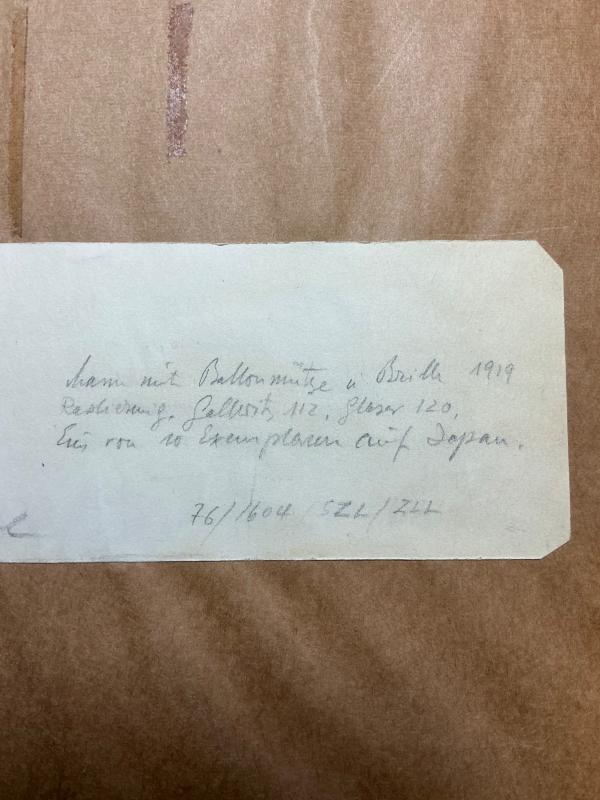 Mann mit Ballonmütze u Brille 1919
Radierung, Gallwitz 112, Glaser 120,
Eins von 10 Exemplaren auf Japan.
76/1604 /SZL/ZLL